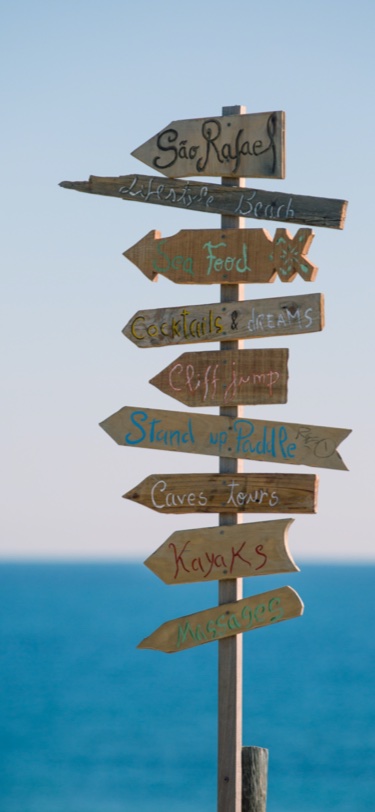 São Rafael
Lifestyle Beach
Sea Food
Cocktails & dREAMS
Cliff jump
Stand up Paddle
Caves tours
KayaKs
Massages